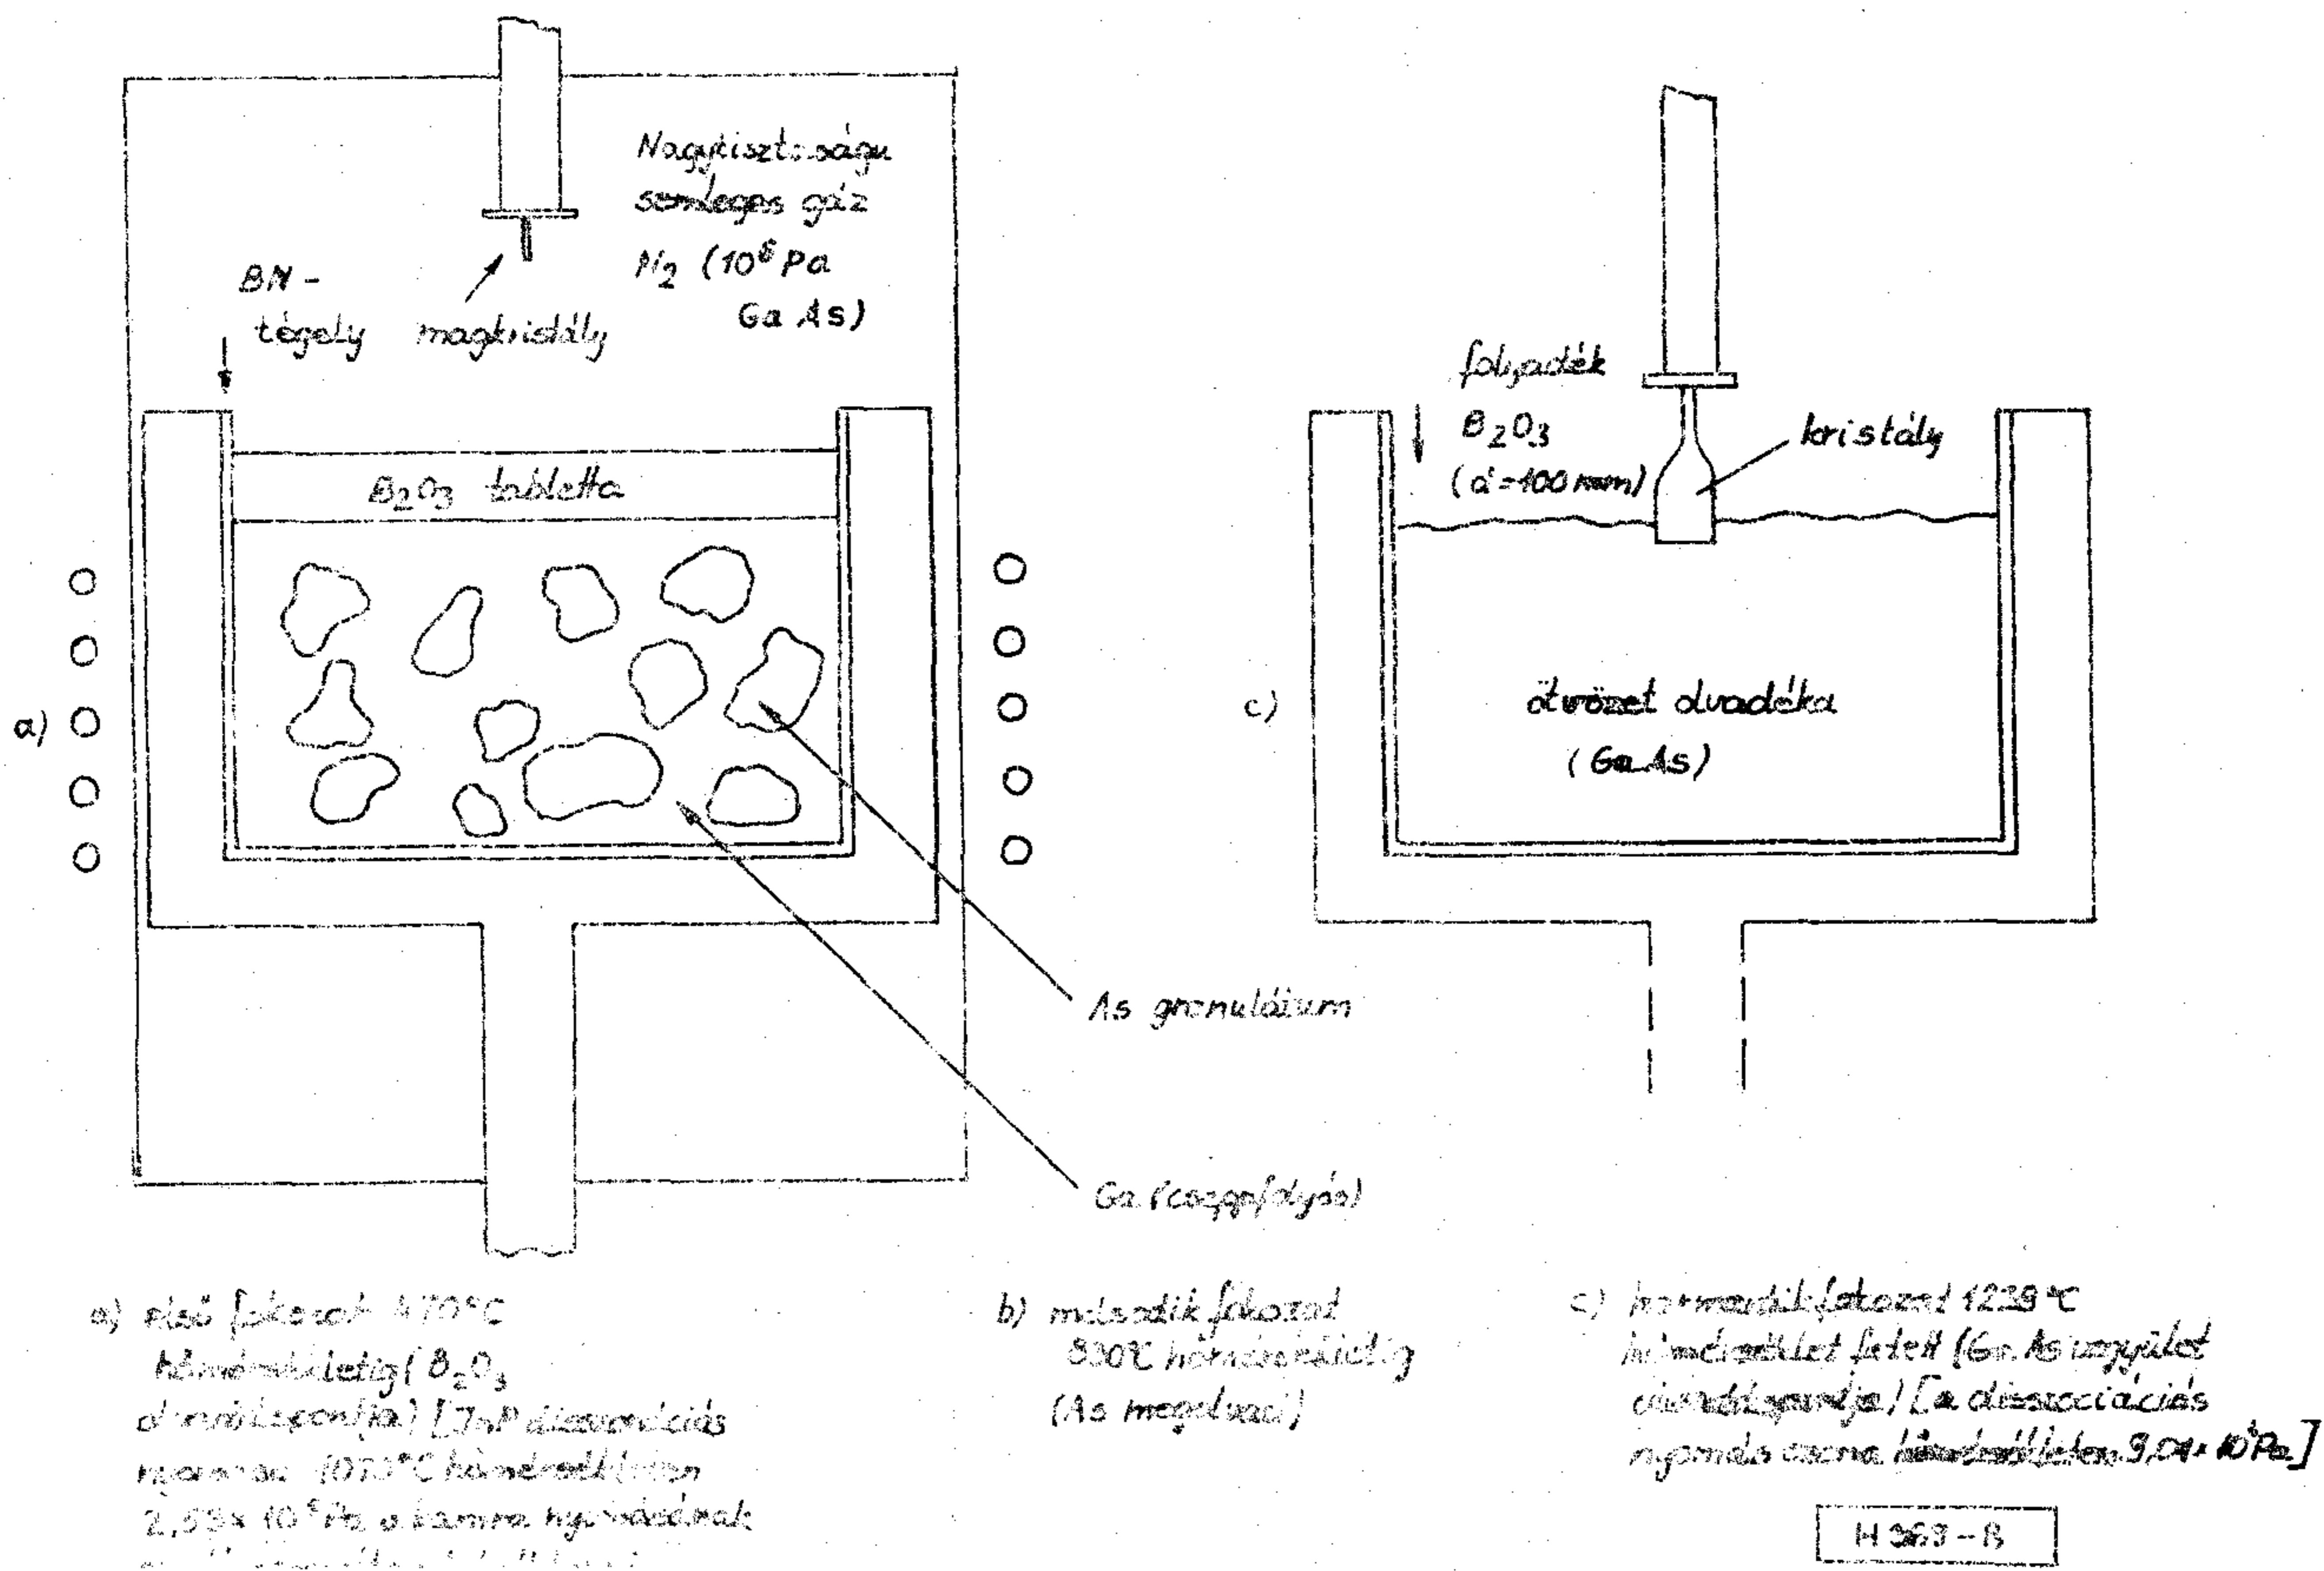 Nagytisztaságu
semleges gáz
N₂ (10⁶ Pa
Ga As)
BN -
tégely
magkristály
B₂O₃ tabletta
a)
As granulátum
Ga (cseppfolyós)
folyadék
B₂O₃
(d=100 mm)
kristály
c)
ötvözet olvadéka
(GaAs)
a) első fokozat 470°C
hőmérsékletig (B₂O₃
[InP disszociációs
1073°C hőmérsékleten
2,53×10⁶ Pa a kamra nyomásának
b) második fokozat
830°C hőmérsékletig
(As megolvad)
c) harmadik fokozat 1239°C
hőmérséklet felett (GaAs vegyület
olvadáspontja) [a disszociációs
nyomás ezen a hőmérsékleten 9,01×10⁴Pa]
H 363-B